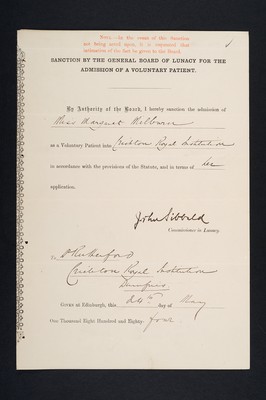 NOTE.—In the event of this Sanction
not being acted upon, it is requested that
intimation of the fact be given to the Board.
SANCTION BY THE GENERAL BOARD OF LUNACY FOR THE
ADMISSION OF A VOLUNTARY PATIENT.
By Authority of the Board, I hereby sanction the admission of
Miss Margaret Milburn
as a Voluntary Patient into Crichton Royal Institution
in accordance with the provisions of the Statute, and in terms of her
application.
John Sibbald
Commissioner in Lunacy.
To Rutherford
Crichton Royal Institution
Dumfries
GIVEN at Edinburgh, this 24th day of May
One Thousand Eight Hundred and Eighty-four